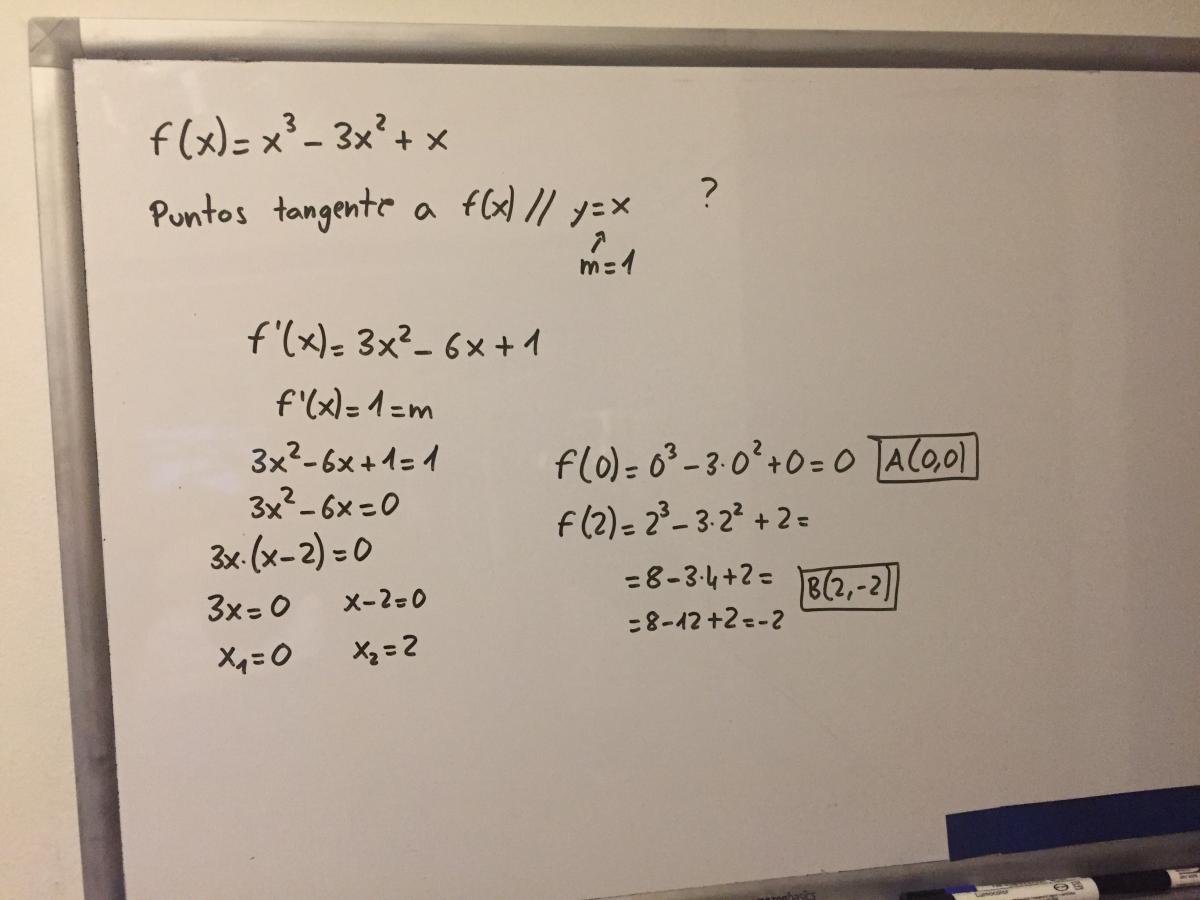 f(x)= x³ - 3x² + x
Puntos tangente a f(x) // y=x ?
↗
m=1
f'(x)= 3x² - 6x + 1
f'(x)=1=m
3x²-6x+1=1
3x²-6x=0
3x·(x-2)=0
3x=0 x-2=0
x₁=0 x₂=2
f(0)= 0³ - 3·0² + 0 = 0 A(0,0)
f(2)= 2³ - 3·2² + 2 =
=8-3·4+2= B(2,-2)
=8-12+2=-2